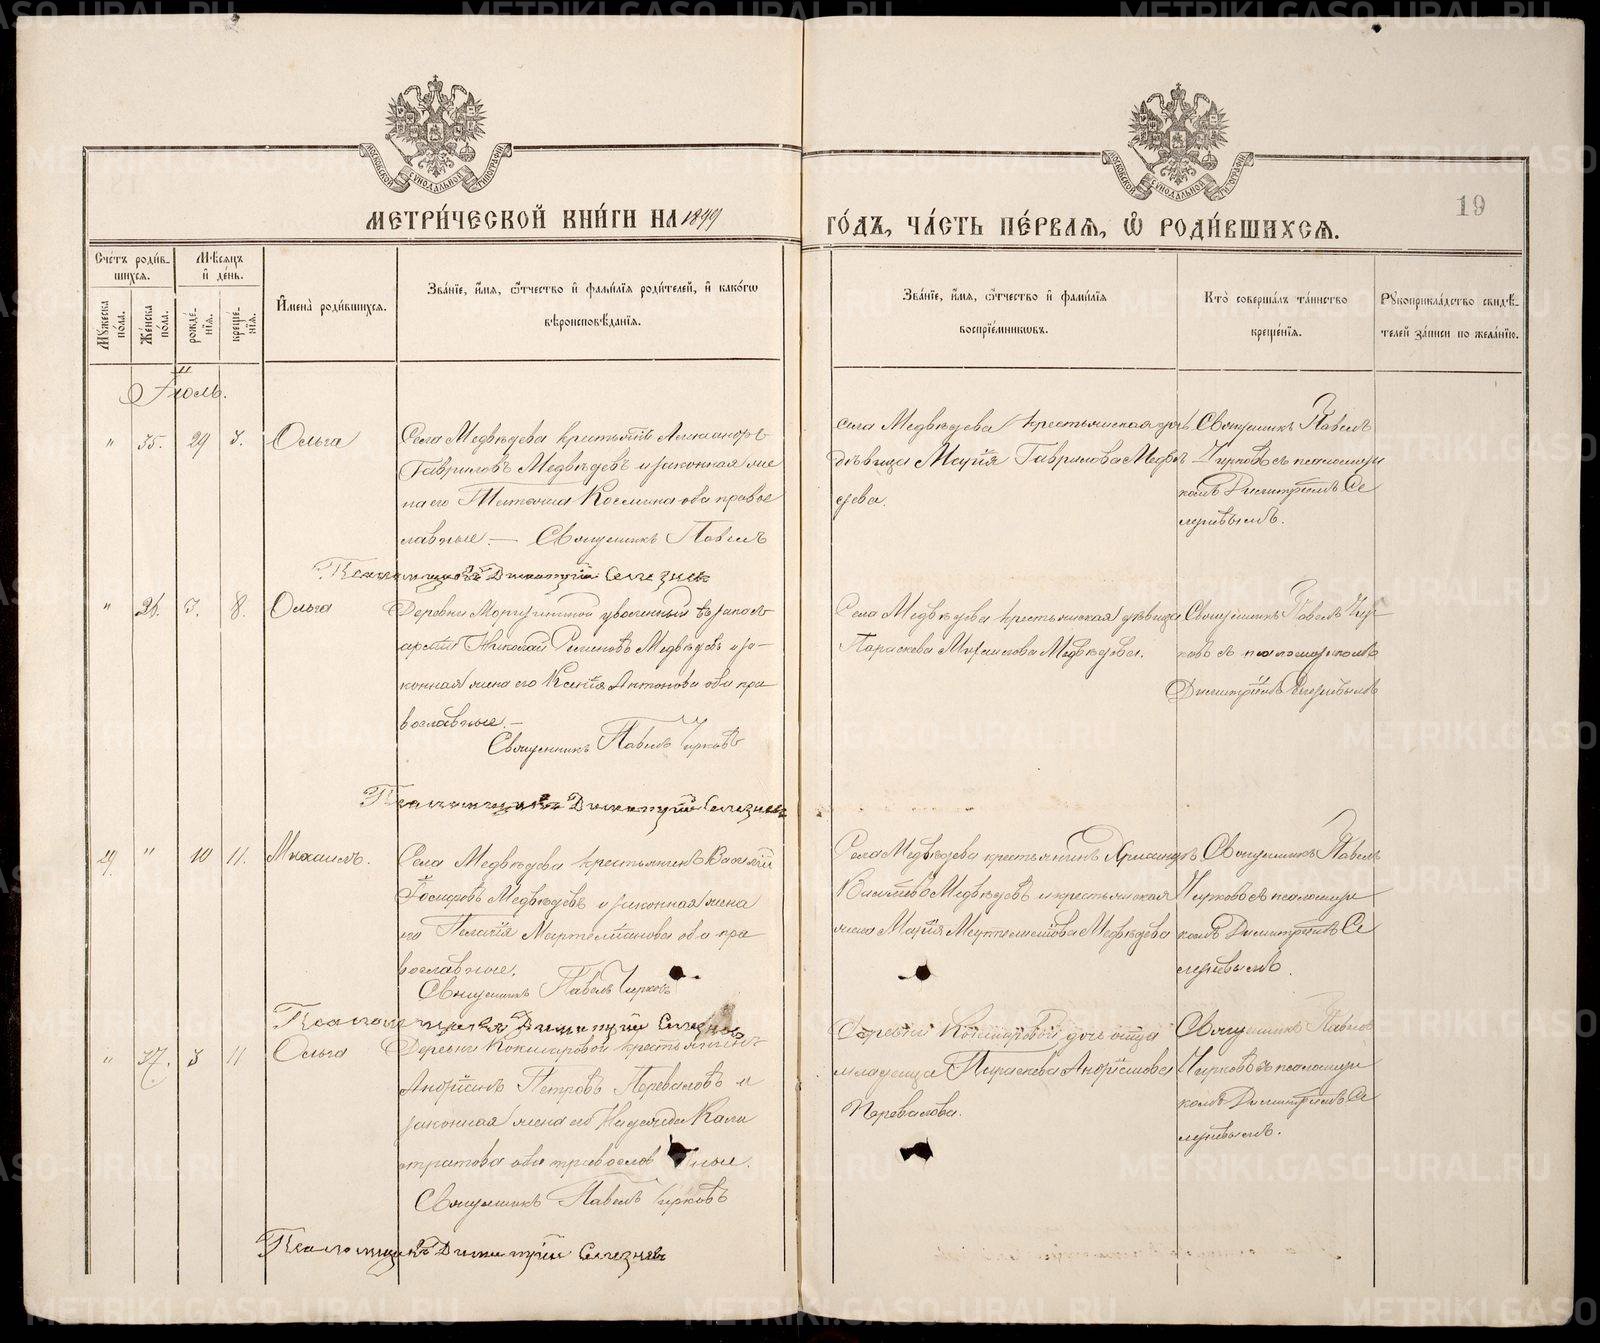 МЕТРИ́ЧЕСКОЙ КНИ́ГИ НА 1899
ГО́ДЪ, ЧА́СТЬ ПЕ́РВАЯ, Ѽ РОДИ́ВШИХСѦ.
19
Сче́тъ роди́в-
шихсѧ.
Мѣсѧцъ
и҆ де́нь.
Мꙋ́жеска
по́ла.
Же́нска
по́ла.
рожде́-
нїѧ.
креще́-
нїѧ.
И҆мена̀ роди́вшихсѧ.
Зва́нїе, и҆́мѧ, ѻ҆́тчество и҆ фами́лїѧ роди́телей, и҆ како́гѡ
вѣроисповѣ́данїѧ.
Зва́нїе, и҆́мѧ, ѻ҆́тчество и҆ фами́лїѧ
воспрїе́мникѡвъ.
Кто̀ соверша́лъ та́инство
креще́нїѧ.
Рꙋкоприкла́дство свидѣ́-
телей за́писи по жела́нїю.
Іюль.
" 35. 29 3. Ольга
Села Медвѣдева крестьянинъ Александръ
Гавриловъ Медвѣдевъ и законная же
на его Татiана Космина оба право
славные. — Священникъ Павелъ
Псаломщикъ Димитрій Селезневъ
села Медвѣдева крестьянская дочь
дѣвица Марія Гаврилова Медвѣ
дева.
Священникъ Павелъ
Чирковъ съ псаломщи
комъ Димитріемъ Се
лезневымъ.
" 36. 3. 8. Ольга
Деревни уволенный въ запасъ
арміи Николай Медвѣдевъ и за-
конная жена его Ксенія Антонова оба пра
вославные. —
Священникъ Павелъ Чирковъ
Псаломщикъ Димитрій Селезневъ
Села Медвѣдева крестьянская дѣвица
Параскева Михаилова Медвѣдева.
Священникъ Павелъ Чир
ковъ съ псаломщикомъ
Димитріемъ Селезневымъ
29. " 10 11. Михаилъ.
Села Медвѣдева крестьянинъ Василій
Іосифовъ Медвѣдевъ и законная жена
его Пелагія оба пра
вославные.
Священникъ Павелъ Чирковъ
Псаломщикъ Димитрій Селезневъ
Села Медвѣдева крестьянинъ
Медвѣдевъ и крестьянская
жена Марія Медвѣдева
Священникъ Павелъ
Чирковъ съ псаломщи
комъ Димитріемъ Се
лезневымъ.
" 37. 3 11 Ольга
Деревни Кокшаровой крестьянинъ
Андріанъ Петровъ Перваловъ и
законная жена его Надежда Кали
стратова оба православные.
Священникъ Павелъ Чирковъ
Псаломщикъ Димитрій Селезневъ
Деревни Кокшаровой дочь отца
младенца Параскева Андріанова
Перевалова.
Священникъ Павелъ
Чирковъ съ псаломщи
комъ Димитріемъ Се
лезневымъ.
METRIKI.GASO-URAL.RU